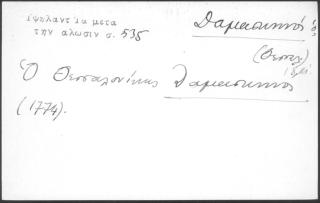 Υψηλαντ Τα μετα
την αλωσιν σ. 535
Δαμασκηνός ὁ
(Θεσσ.)
Ὁ Θεσσαλονίκης Δαμασκηνός
(1774).